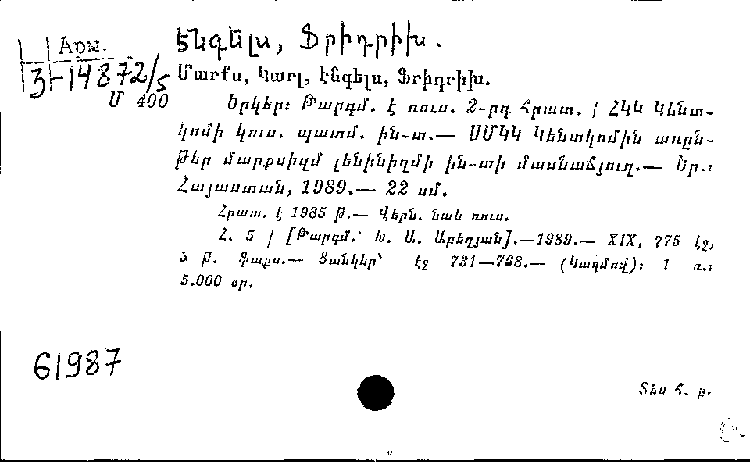 Էնգելս, Ֆրիդրիխ.
Արմ.
3-14872/5
Մ 400
Մարքս, Կարլ, Էնգելս, Ֆրիդրիխ.
Երկեր: Թարգմ. է ռուս. 2-րդ Հրատ. / ՀԿԿ Կենտ-
կոմի կուս. պատմ. ին-տ.— ՍՄԿԿ Կենտկոմին առըն-
թեր մարքսիզմ լենինիզմի ին-տի մասնաճյուղ.— Եր.:
Հայաստան, 1989.— 22 սմ.
Հրատ. է 1985 թ.— Վերն. նաև ռուս.
Հ. 5 / [Թարգմ.՝ Խ. Ա. Աբեղյան].—1989.— XIX, 775 էջ,
թ. ֆաքս.— Ցանկեր՝ էջ 731—768.— (Կազմով): 1 ռ.:
5.000 օր.
61987
Տես Հ. թ.